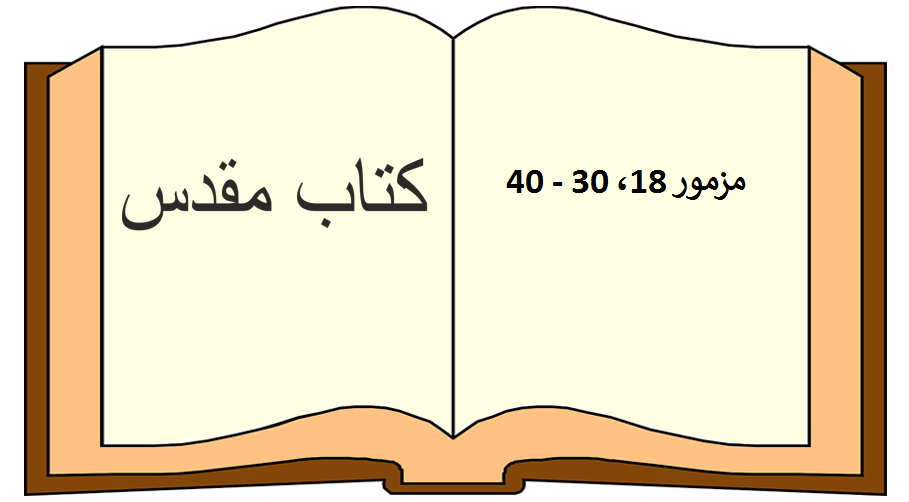 کتاب مقدس
مزمور 18، 30 - 40